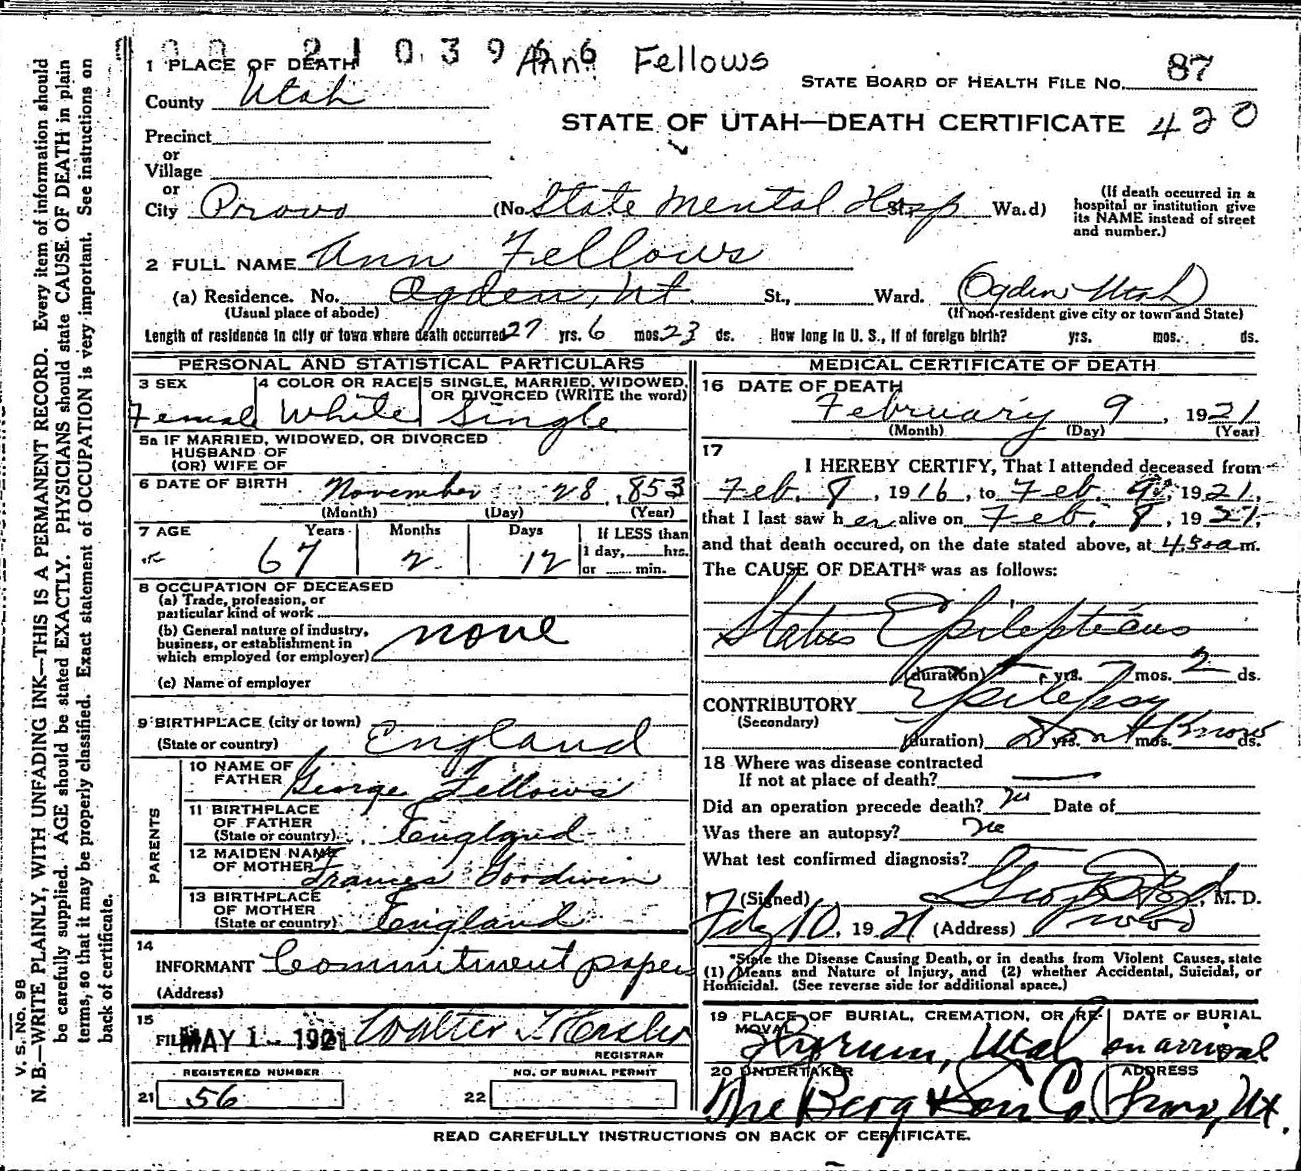 00 21 0 3 9 6 6 Ann Fellows
1 PLACE OF DEATH
STATE BOARD OF HEALTH FILE NO. 87
County Utah
STATE OF UTAH—DEATH CERTIFICATE 420
Precinct
or
Village
or
City Provo (No. State Mental Hosp St., Wa.d)
(If death occurred in a hospital or institution give its NAME instead of street and number.)
2 FULL NAME Ann Fellows
(a) Residence. No. Ogden, Ut. St., Ward. Ogden Utah
(Usual place of abode) (If non-resident give city or town and State)
Length of residence in city or town where death occurred 27 yrs. 6 mos. 23 ds. How long in U. S., if of foreign birth? yrs. mos. ds.
PERSONAL AND STATISTICAL PARTICULARS
3 SEX 4 COLOR OR RACE 5 SINGLE, MARRIED, WIDOWED, OR DIVORCED (WRITE the word)
Female White Single
5a IF MARRIED, WIDOWED, OR DIVORCED
HUSBAND OF
(OR) WIFE OF
6 DATE OF BIRTH November 28, 853
(Month) (Day) (Year)
7 AGE Years Months Days If LESS than
67 2 12 1 day, hrs.
or min.
8 OCCUPATION OF DECEASED
(a) Trade, profession, or
particular kind of work
(b) General nature of industry,
business, or establishment in
which employed (or employer) none
(c) Name of employer
9 BIRTHPLACE (city or town)
(State or country) England
PARENTS
10 NAME OF
FATHER George Fellows
11 BIRTHPLACE
OF FATHER
(State or country) England
12 MAIDEN NAME
OF MOTHER Frances Goodwin
13 BIRTHPLACE
OF MOTHER
(State or country) England
14
INFORMANT Commitment papers
(Address)
15
FILED MAY 1 - 1921 Walter T. Hasler
REGISTRAR
REGISTERED NUMBER NO. OF BURIAL PERMIT
21 56 22
MEDICAL CERTIFICATE OF DEATH
16 DATE OF DEATH
February 9, 1921
(Month) (Day) (Year)
17
I HEREBY CERTIFY, That I attended deceased from
Feb. 8, 1916, to Feb. 9, 1921,
that I last saw her alive on Feb. 8, 1921,
and that death occured, on the date stated above, at 4:30 a m.
The CAUSE OF DEATH* was as follows:
Status Epilepticus
(duration) yrs. mos. 2 ds.
CONTRIBUTORY Epilepsy
(Secondary)
(duration) Don't Know yrs. mos. ds.
18 Where was disease contracted
If not at place of death?
Did an operation precede death? no Date of
Was there an autopsy? no
What test confirmed diagnosis?
(Signed) Geo , M. D.
Feby 10, 1921 (Address) Provo
*State the Disease Causing Death, or in deaths from Violent Causes, state
(1) Means and Nature of Injury, and (2) whether Accidental, Suicidal, or
Homicidal. (See reverse side for additional space.)
19 PLACE OF BURIAL, CREMATION, OR RE- DATE OF BURIAL
MOVAL
Hyrum, Utah on arrival
20 UNDERTAKER ADDRESS
The Berg & Son Co. Provo, Ut.
READ CAREFULLY INSTRUCTIONS ON BACK OF CERTIFICATE.
V. S. No. 98
N. B.—WRITE PLAINLY, WITH UNFADING INK—THIS IS A PERMANENT RECORD. Every item of information should
be carefully supplied. AGE should be stated EXACTLY. PHYSICIANS should state CAUSE OF DEATH in plain
terms, so that it may be properly classified. Exact statement of OCCUPATION is very important. See instructions on
back of certificate.